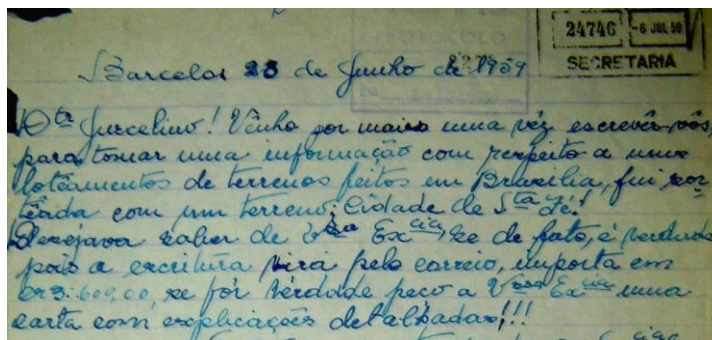 24746 -6 JUL 59
SECRETARIA
Barcelos 23 de Junho de 1959
Dr Jurcelino! Venho por mais uma vêz escrevêr-vós,
para tomar uma informação com respeito a uns
lotêamentos de terrenos feitos em Brazilia, fui sor
têada com um terreno; Cidade de Sta Fé!
Desejava saber de Vssa Excia, se de fato, é verdade
pois a escritura virá pelo correio, importa em
cr$: 600,00, se fôr verdade peço a Vossa Excia uma
carta com explicações detalhadas!!!